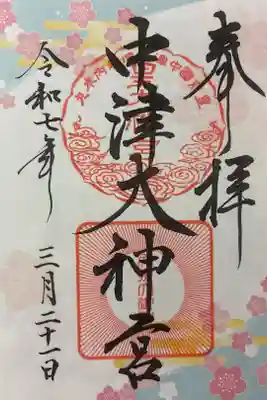 奉拝
中津大神宮
令和七年
三月二十一日